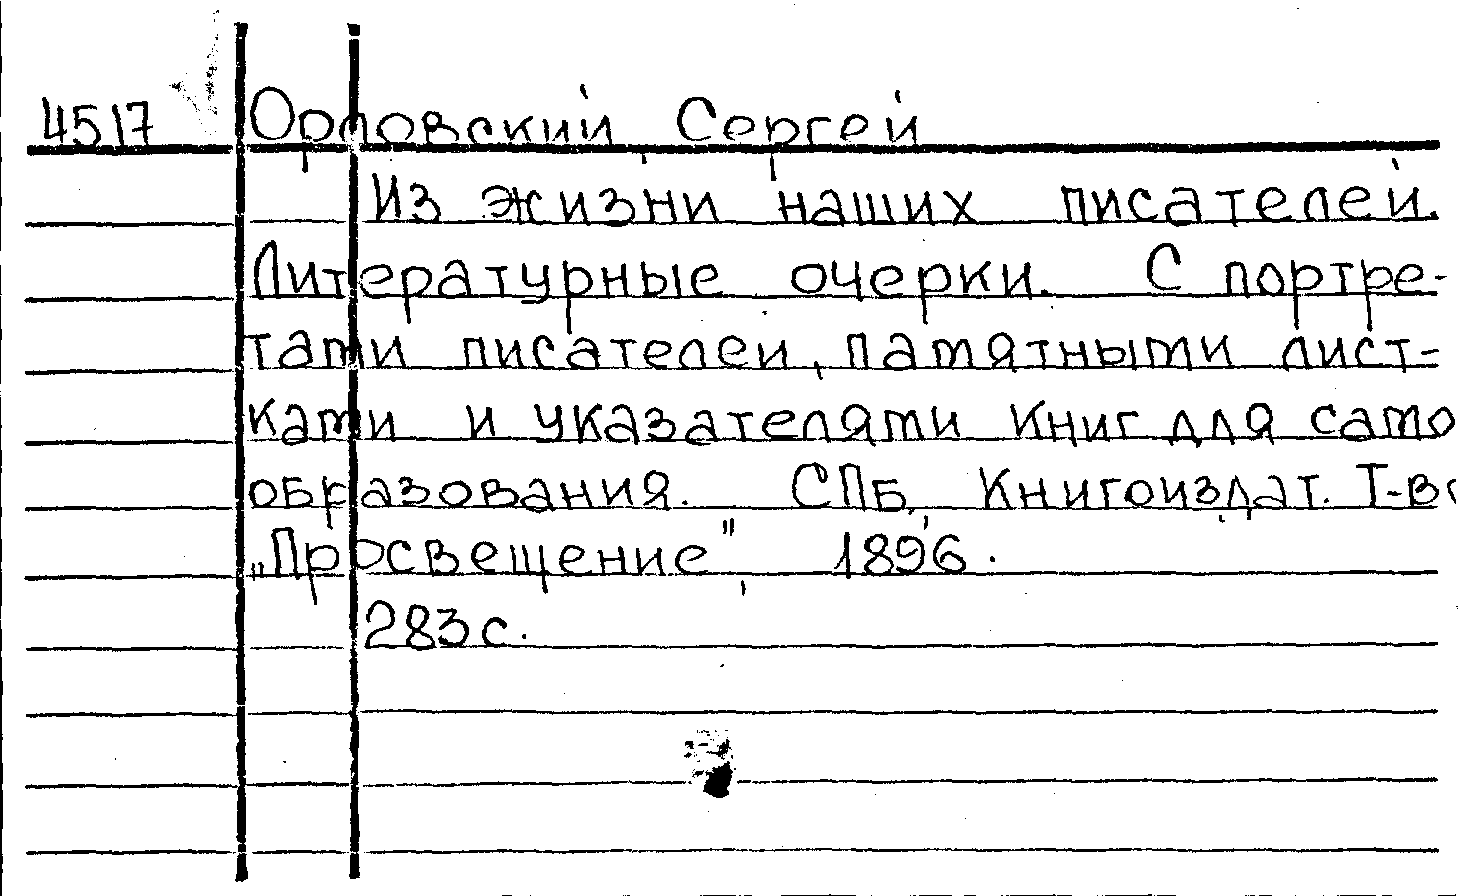 4517 Орловский, Сергей
Из жизни наших писателей.
Литературные очерки. С портре-
тами писателей, памятными лист-
ками и указателями книг для само
образования. СПБ, Книгоиздат. Т-во
„Просвещение", 1896.
283 с.